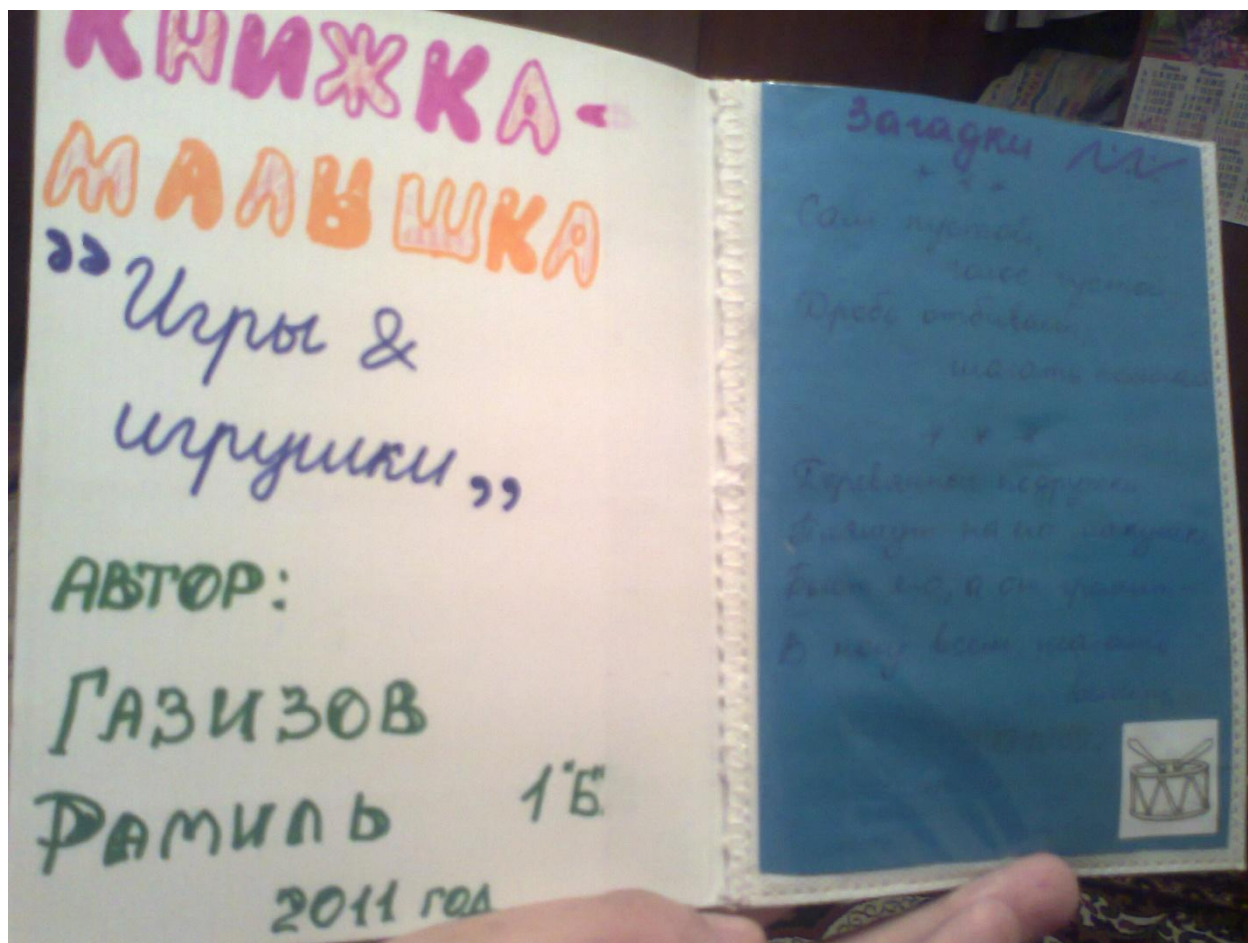 КНИЖКА-
МАЛЫШКА
"Игры &
игрушки"
АВТОР:
ГАЗИЗОВ
РАМИЛЬ 1 "Б"
2011 год
Загадки
* * *
Сам пустой,
голос густой,
Дробь отбивает,
шагать помогает
* * *
Деревянные подружки
Пляшут на его макушке,
Бьют его, а он гремит -
В ногу всем шагать
велит.